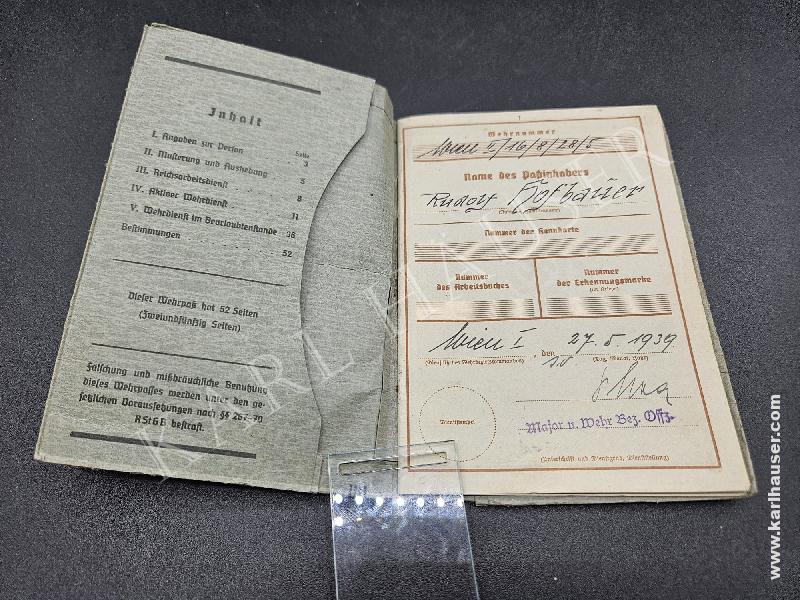 Inhalt
Seite
I. Angaben zur Person 3
II. Musterung und Aushebung 5
III. Reichsarbeitsdienst 8
IV. Aktiver Wehrdienst 11
V. Wehrdienst im Beurlaubtenstande 38
Bestimmungen 52
Dieser Wehrpaß hat 52 Seiten
(Zweiundfünfzig Seiten)
Fälschung und mißbräuchliche Benutzung
dieses Wehrpasses werden unter den ge-
setzlichen Voraussetzungen nach §§ 267-70
RStGB bestraft.
1
Wehrnummer
Wien II/16/8/28/5
Name des Paßinhabers
Rudolf Hofbauer
Nummer der Kennkarte
Nummer
des Arbeitsbuches
Nummer
der Erkennungsmarke
(im Kriege)
Wien I, den 27. 5. 1939
(Tag, Monat, Jahr)
Dienststempel
Major u. Wehr Bez. Offz.
(Unterschrift und Dienstgrad, Dienststellung)
KARL HAUSER
www.karlhauser.com